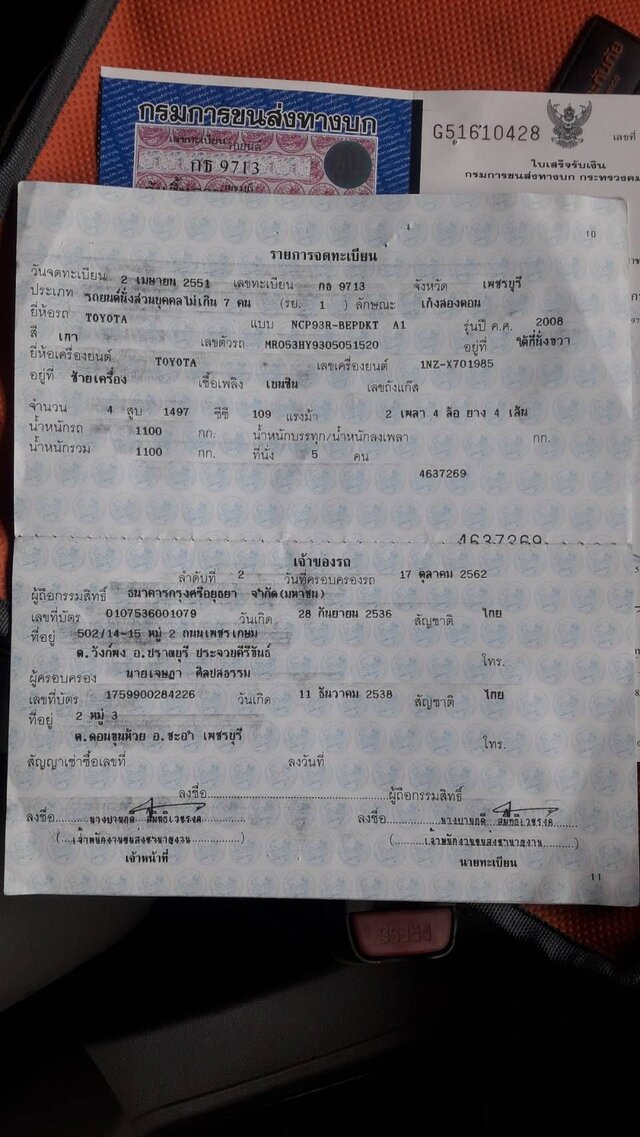 กรมการขนส่งทางบก
เลขทะเบียนรถยนต์
กธ 9713
เพชรบุรี
G51610428
เลขที่
ใบเสร็จรับเงิน
กรมการขนส่งทางบก กระทรวงคม
10
รายการจดทะเบียน
วันจดทะเบียน 2 เมษายน 2551 เลขทะเบียน กธ 9713 จังหวัด เพชรบุรี
ประเภท รถยนต์นั่งส่วนบุคคลไม่เกิน 7 คน (รย. 1 ) ลักษณะ เก๋งสองตอน
ยี่ห้อรถ TOYOTA แบบ NCP93R-BEPDKT A1 รุ่นปี ค.ศ. 2008
สี เทา เลขตัวรถ MR053HY9305051520 อยู่ที่ ใต้ที่นั่งขวา
ยี่ห้อเครื่องยนต์ TOYOTA เลขเครื่องยนต์ 1NZ-X701985
อยู่ที่ ซ้ายเครื่อง เชื้อเพลิง เบนซิน เลขถังแก๊ส
จำนวน 4 สูบ 1497 ซีซี 109 แรงม้า 2 เพลา 4 ล้อ ยาง 4 เส้น
น้ำหนักรถ 1100 กก. น้ำหนักบรรทุก/น้ำหนักลงเพลา กก.
น้ำหนักรวม 1100 กก. ที่นั่ง 5 คน
4637269
4637269
เจ้าของรถ
ลำดับที่ 2 วันที่ครอบครองรถ 17 ตุลาคม 2562
ผู้ถือกรรมสิทธิ์ ธนาคารกรุงศรีอยุธยา จำกัด(มหาชน)
เลขที่บัตร 0107536001079 วันเกิด 28 กันยายน 2536 สัญชาติ ไทย
ที่อยู่ 502/14-15 หมู่ 2 ถนนเพชรเกษม
ต.วังก์พง อ.ปราณบุรี ประจวบคีรีขันธ์ โทร.
ผู้ครอบครอง นายเจษฎา ศิลปสธรรม
เลขที่บัตร 1759900284226 วันเกิด 11 ธันวาคม 2538 สัญชาติ ไทย
ที่อยู่ 2 หมู่ 3
ต.ดอนขุนห้วย อ.ชะอำ เพชรบุรี โทร.
สัญญาเช่าซื้อเลขที่ ลงวันที่
ลงชื่อ ผู้ถือกรรมสิทธิ์
ลงชื่อ ลงชื่อ
(เจ้าพนักงานขนส่งชำนาญงาน) (เจ้าพนักงานขนส่งชำนาญงาน)
เจ้าหน้าที่ นายทะเบียน
11
PRESS